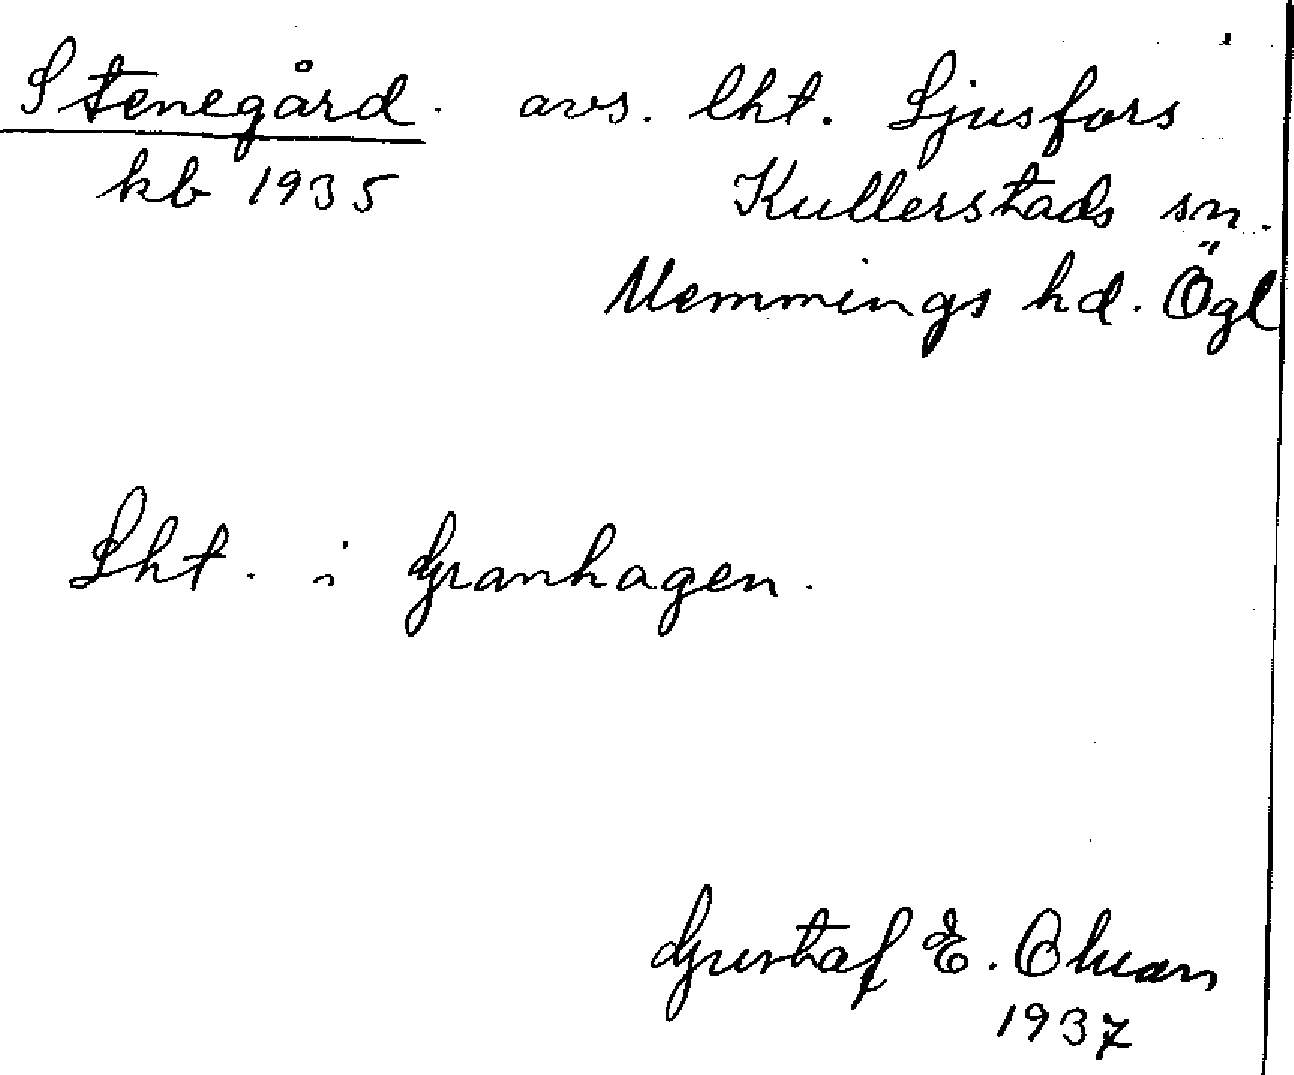 Stenegård. avs. lht. Ljusfors
kb 1935 Kullerstads sn.
Memmings hd. Ögl
Lht. i Granhagen.
Gustaf E. Olsson
1937